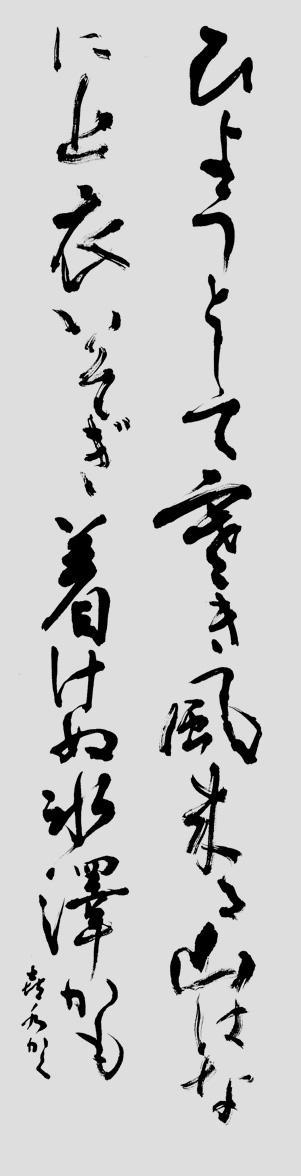 ひようとして寒き風来る山はな
に上衣いそぎ着けぬ氷澤かも